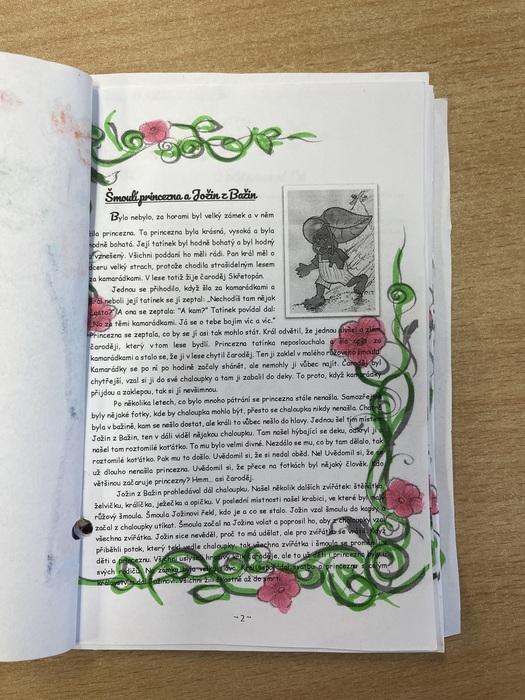 Šmoulí princezna a Jožin z Bažin
Bylo nebylo, za horami byl velký zámek a v něm
byla princezna. Ta princezna byla krásná, vysoká a byla
hodně bohatá. Její tatínek byl hodně bohatý a byl hodný
a vznešený. Všichni poddaní ho měli rádi. Pan král měl o
dceru velký strach, protože chodila strašidelným lesem
za kamarádkami. V lese totiž žije čaroděj Skřetopán.
Jednou se přihodilo, když šla za kamarádkami a
neboli její tatínek se jí zeptal: „Nechodíš tam nějak
často?" A ona se zeptala: "A kam?" Tatínek povídal dal:
„No za těmi kamarádkami. Já se o tebe bojím víc a víc."
Princezna se zeptala, co by se jí asi tak mohlo stát. Král odvětil, že jednou slyšel o zlém
čaroději, který v tom lese bydlí. Princezna tatínka neposlouchala a šla opět za
kamarádkami a stalo se, že ji v lese chytil čaroděj. Ten ji zaklel v malého růžového šmoulu.
Kamarádky se po ní po hodině začaly shánět, ale nemohly ji vůbec najít. Čaroděj byl
chytřejší, vzal si ji do své chaloupky a tam ji zabalil do deky. To proto, když kamarádky
přijdou a zaklepou, tak si jí nevšimnou.
Po několika letech, co bylo mnoho pátrání se princezna stále nenašla. Samozřejmě
byly nějaké fotky, kde by chaloupka mohla být, přesto se chaloupka nikdy nenašla. Chatrč
byla v bažině, kam se nešlo dostat, ale králi to vůbec nešlo do hlavy. Jednou šel tím místem
Jožin z Bažin, ten v dáli viděl nějakou chaloupku. Tam našel hýbající se deku, odkryl ji a
našel tam roztomilé koťátko. To mu bylo velmi divné. Nezdálo se mu, co by tam dělalo, tak
roztomilé koťátko. Pak mu to došlo. Uvědomil si, že si nandal obě. Ne! Uvědomil si, že se
už dlouho nenašla princezna. Uvědomil si, že přece na fotkách byl nějaký člověk. Kdo
většinou začaruje princezny? Hmm... asi čaroděj.
Jožin z Bažin prohledával dál chaloupku. Našel několik dalších zvířátek: štěňátko,
želvičku, králíčka, ježečka a opičku. V poslední místnosti našel krabici, ve které byl malý
růžový šmoula. Šmoula Jožinovi řekl, kdo je a co se stalo. Jožin vzal šmoulu do kapsy a
začal z chaloupky utíkat. Šmoula začal na Jožina volat a poprosil ho, aby z chaloupky vzal
všechna zvířátka. Jožin sice nevěděl, proč to má udělat, ale pro zvířátka se vrátil. Když
přiběhli potok, který tekl vedle chaloupky, tak všechna zvířátka i šmoula se proměnili v
děti a princeznu. Všichni uslyšeli hrozivý křik čaroděje, ale to už děti i princezna byli u
svých rodičů. Na zámku byla veliká
království dal Jožinovi. Všichni žili šťastně až do smrti.
~ 2 ~